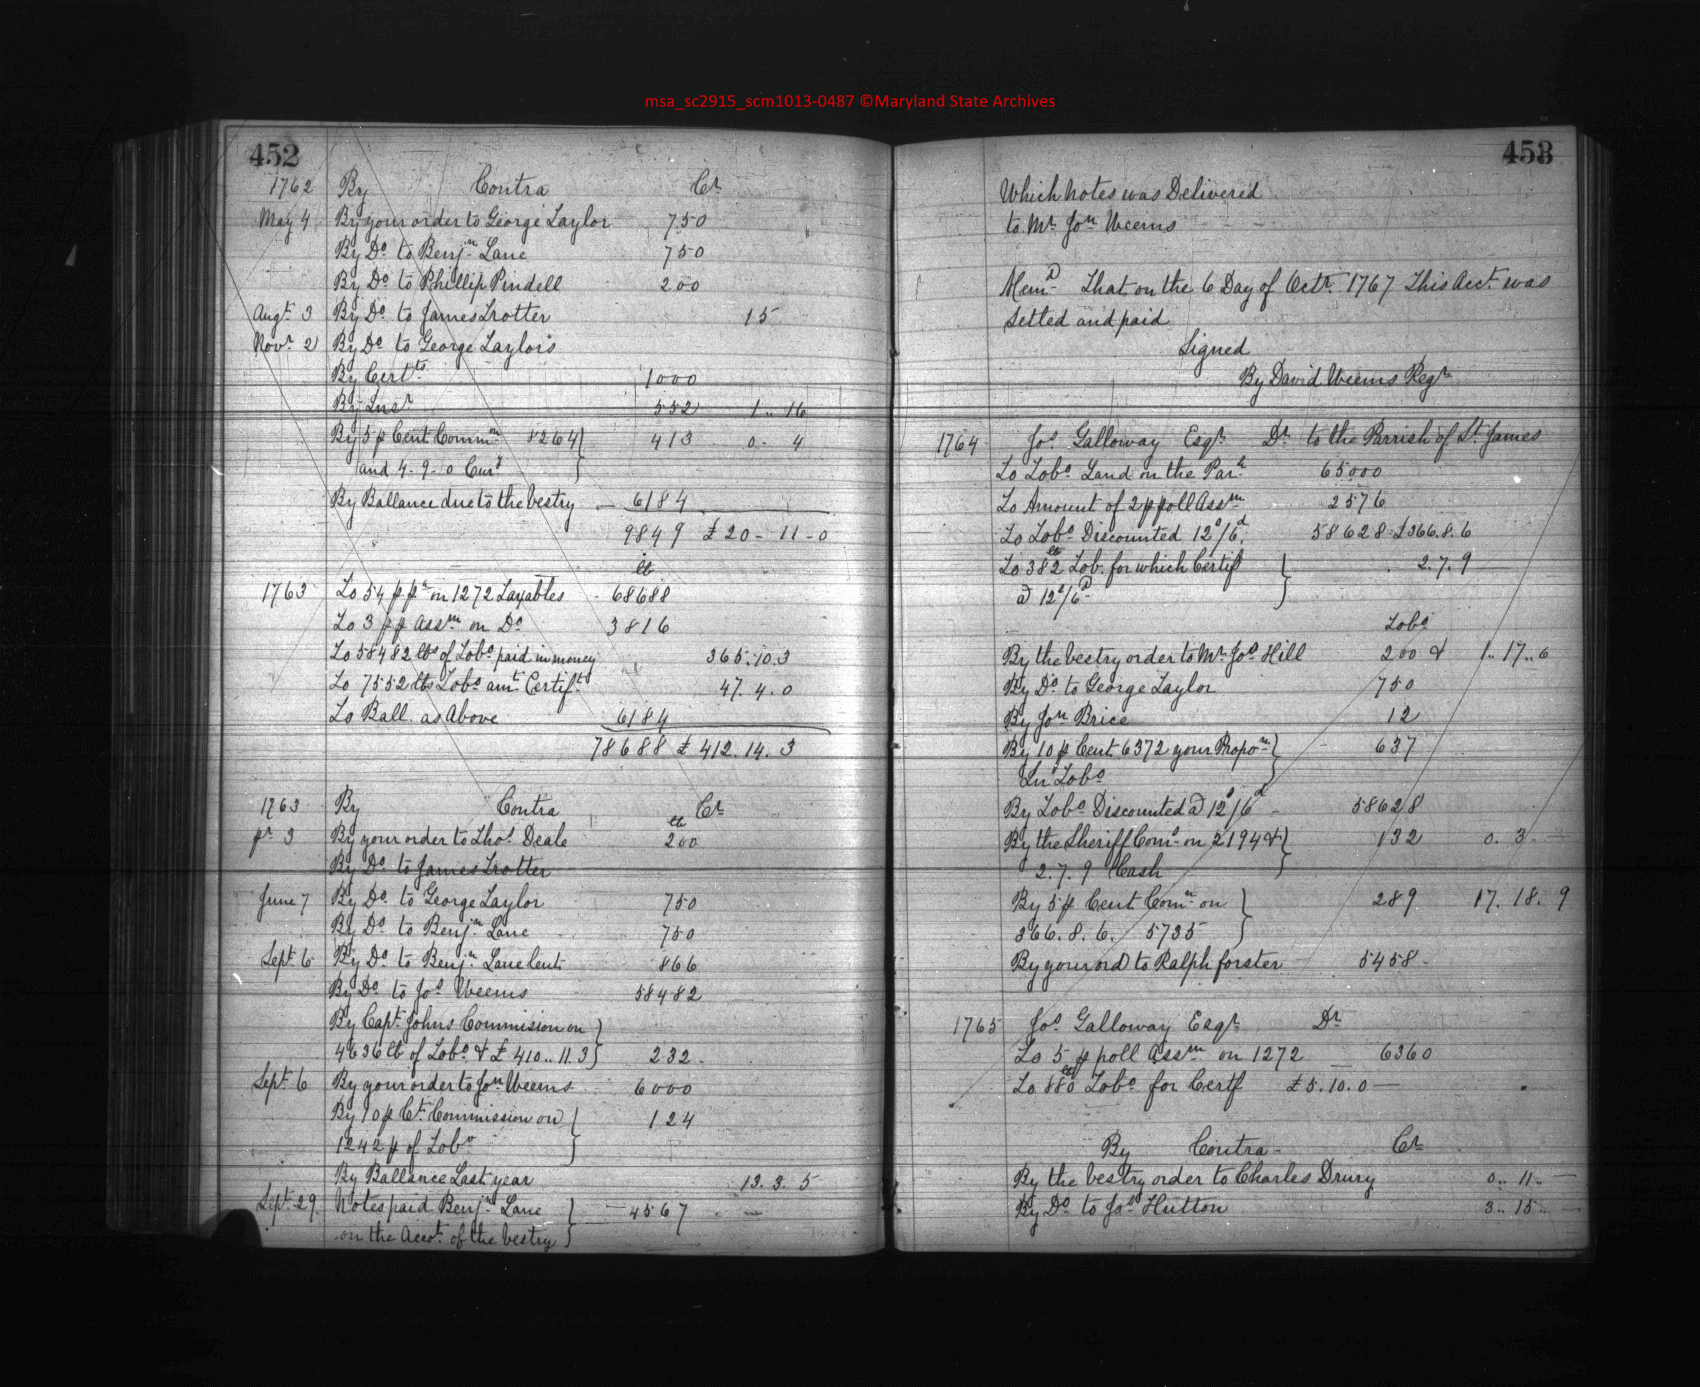 msa_sc2915_scm1013-0487 ©Maryland State Archives
452
1762 By Contra Cr
May 4 By your order to George Taylor 750
By Do to Benjn Lane 750
By Do to Phillip Pindell 200
Augt 3 By Do to James Trotter 15
Novr 2 By Do to George Taylor's
By Certts 1000
By Inst 552 1.. 16
By 5 p Cent Commn 8264} 413 0. 4
and 4-9-0 Curt }
By Ballance due to the vestry 6184
9849 £20-11-0
lb
1763 To 54 p pr on 1272 Taxables 68688
To 3 p p Assmt on Do 3816
To 58482 lbs of Tobo paid in money 365.10.3
To 7552 lbs Tobo amt Certift 47.4.0
To Ball. as Above 6184
78688 £412.14.3
1763 By Contra Cr
pr 3 By your order to Thos Deale lb 200
By Do to James Trotter
June 7 By Do to George Taylor 750
By Do to Benjn Lane 750
Sept. 6 By Do to Benjn Lane 866
By Do to Jos Weems 58482
By Capt Johns Commision on }
4636 lb of Tobo & £410..11.3} 232.
Sept. 6 By your order to Jon Weems 6000
By 10 p Ct Commission on } 124
1242 p of Tobo }
By Ballance Last year 13.3.5
Sept. 29. Notes paid Benjn Lane } 4567
on the Acct of the vestry }
453
Which notes was Delivered
to Mr Jon Weems
Memd That on the 6 Day of Octr 1767 This Acct was
Setted and paid
Signed
By David Weems Regr
1764 Jos Galloway Esqr Dr to the Parrish of St. James
To Tobo Land on the Parh 65000
To Amount of 2 p poll Assmt 2576
To Tobo Discounted 12s/6d 58628 £366.8.6
To 382 lb Tob. for which Certift } 2.7.9
@ 12s/6d }
Tobo
By the vestry order to Mr Jos Hill 200 & 1..17..6
By Do to George Taylor 750
By Jon Brice 12
By 10 p Cent 6372 your Propon } 637
In Tobo }
By Tobo Discounted @ 12s/6d 58628
By the Sheriff Coms on 2194 & } 132 0. 3
2.7.9 Cash }
By 5 p Cent Comn on } 289 17.18.9
366.8.6. 5735 }
By your ord to Ralph forster 5458
1765 Jos Galloway Esqr Dr
To 5 p poll Assmt on 1272 6360
To 880 lb Tobo for Certf £5.10.0
By Contra Cr
By the vestry order to Charles Drury 0..11..
By Do to Jos Hutton 3..15..